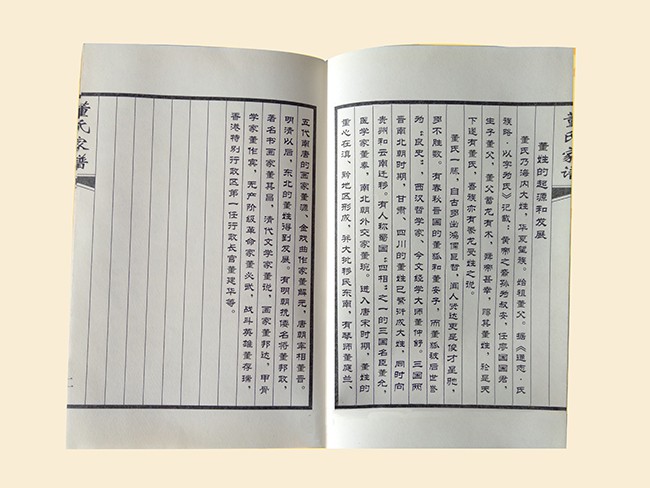 董氏家谱
董姓的起源和发展
董氏乃海内大姓，华夏望族。始祖董父。据《通志·氏
族略·以字为氏》记载：黄帝之裔孙为叔安，任廖国国君，
生子董父，董父畜龙有术，舜帝甚幸，赐其董姓，於是天
下遂有董氏，吾族亦有豢龙受姓之说。
董氏一脉，自古多出鸿儒巨哲，闻人贤达更是俊才星驰，
多不胜数。有春秋晋国的董狐和董安于，而董狐被后世喜
为：良史：，西汉哲学家、今文经学大师董仲舒。三国两
晋南北朝时期，甘肃、四川的董姓已繁衍成大姓，同时向
贵州和云南迁移。有人称蜀国：四相：之一的三国名臣董允，
医学家董奉，南北朝外交家董琬。进入唐宋时期，董姓
重心在滇、黔地区形成，并大批移民东南，有琴师董庭兰、
五代南唐的画家董源、金戏曲作家董解元，唐朝宰相董晋。
明清以后，东北的董姓得到发展。有明朝抗倭名将董邦政，
著名书画家董其昌，清代文学家董说，画家董邦达，甲骨
学家董作宾，无产阶级革命家董必武，战斗英雄董存瑞，
香港特别行政区第一任行政长官董建华等。
董氏家谱
二